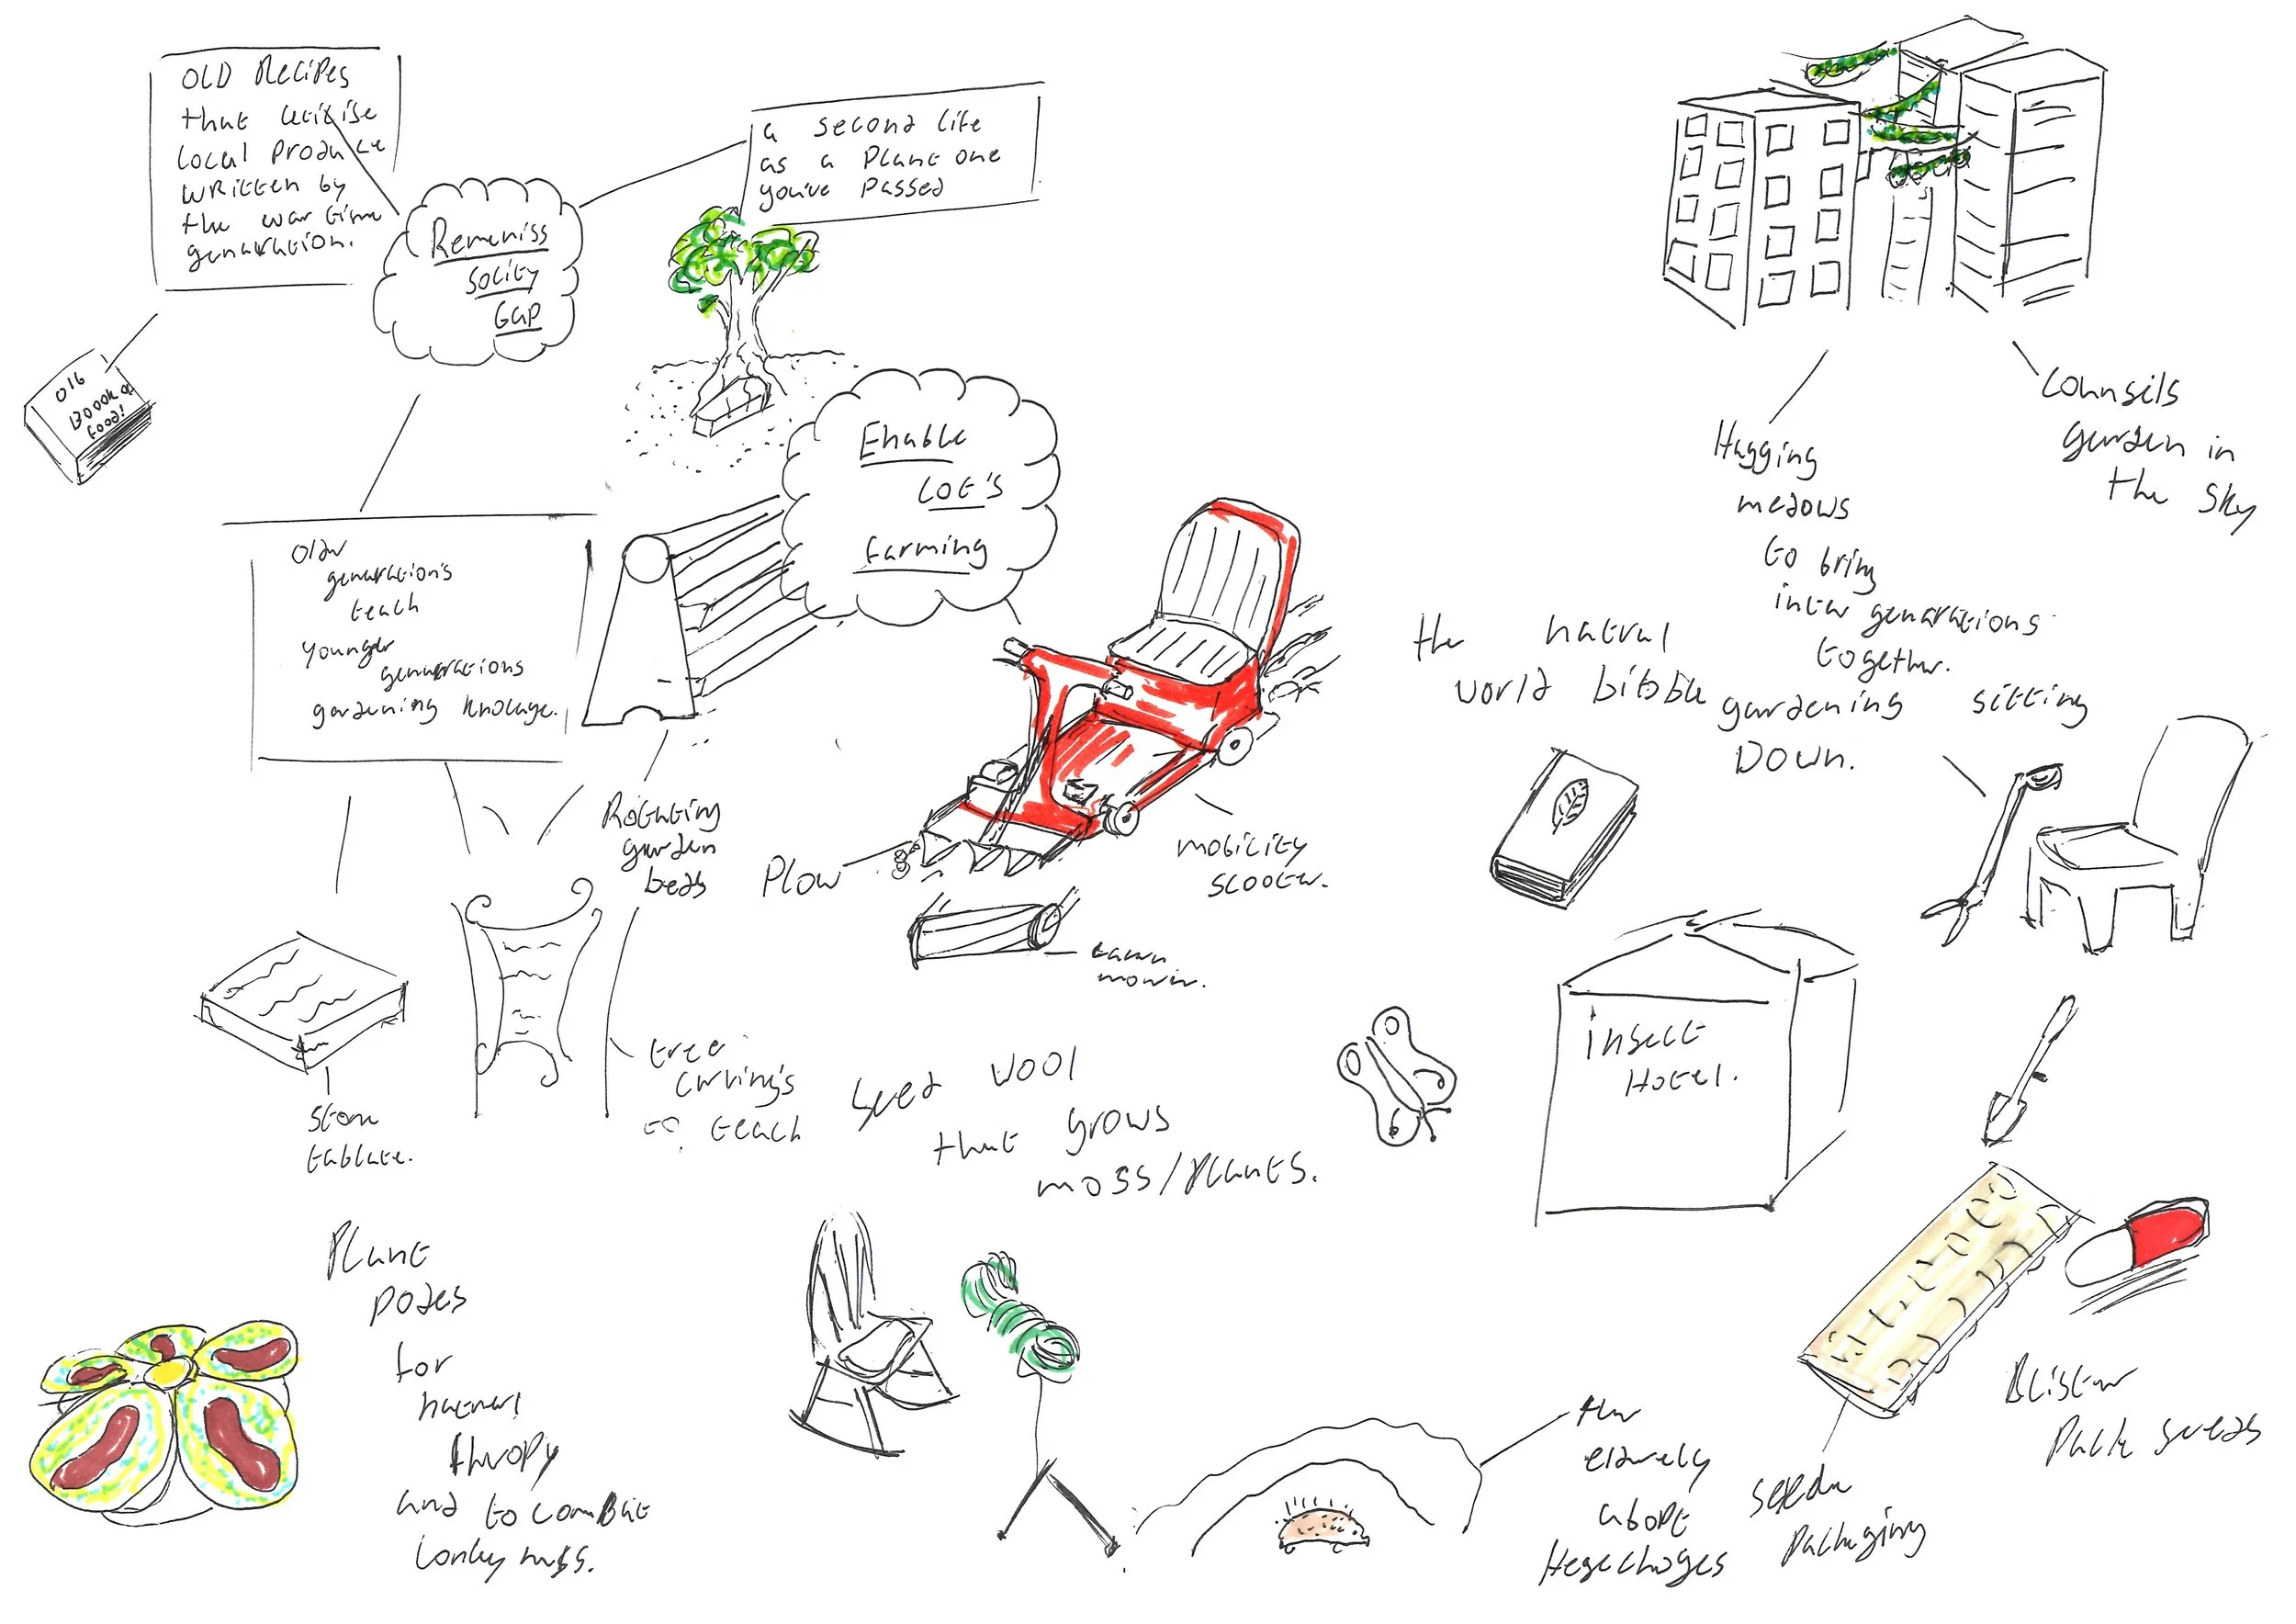 OLD Recipes
that utilise
local produce
written by
the war time
genaration.
a second life
as a plant one
you've passed
Remeniss
solity
Gap
Old
Boook of
food!
Enable
LOt's
farming
older
genarations
teach
younger
genarations
gardening knolage.
Rotating
garden
beds
Plow
mobility
scooter.
Lawn
mower.
stone
tablate.
tree
carving's
to teach
seed wool
that grows
moss/plants.
Plant
podes
for
natural
theropy
and to comBat
lonlyness.
Counsils
garden in
the sky
Hugging
medows
to bring
inter genarations
together.
the natral
world bibble
gardening sitting
DOwn.
insect
Hotel.
Blister
Pack seeds
seeda
packaging
the
elderely
adopt
Hegechoges